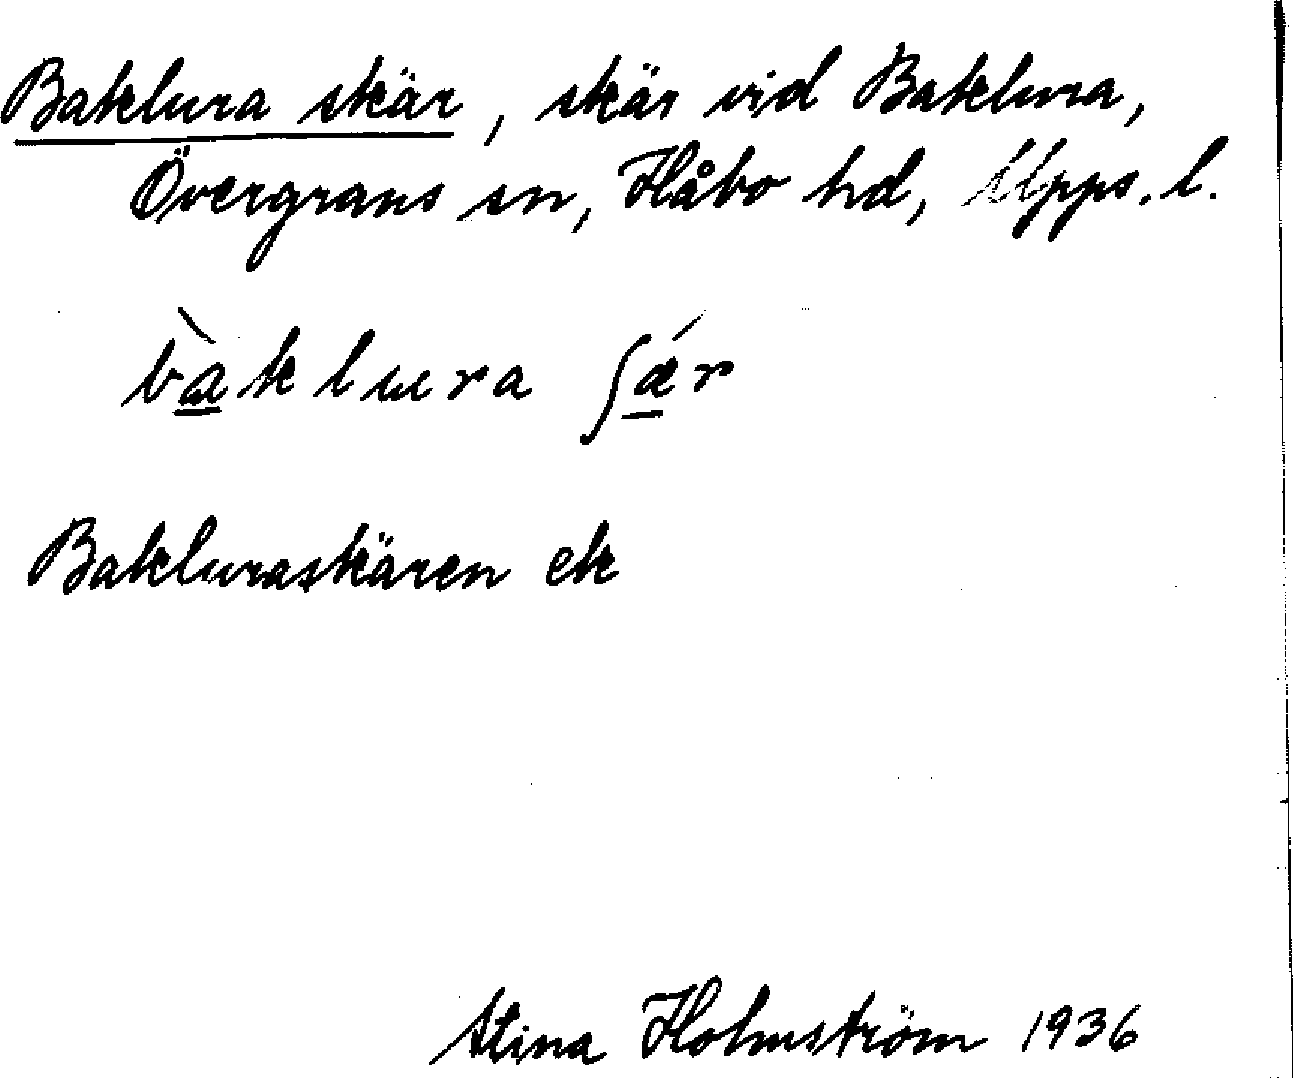 Baklura skär, skär vid Baklura,
Övergrans sn, Håbo hd, Upps. l.
bàklura ʃǽr
Bakluraskären ek
Stina Holmström 1936